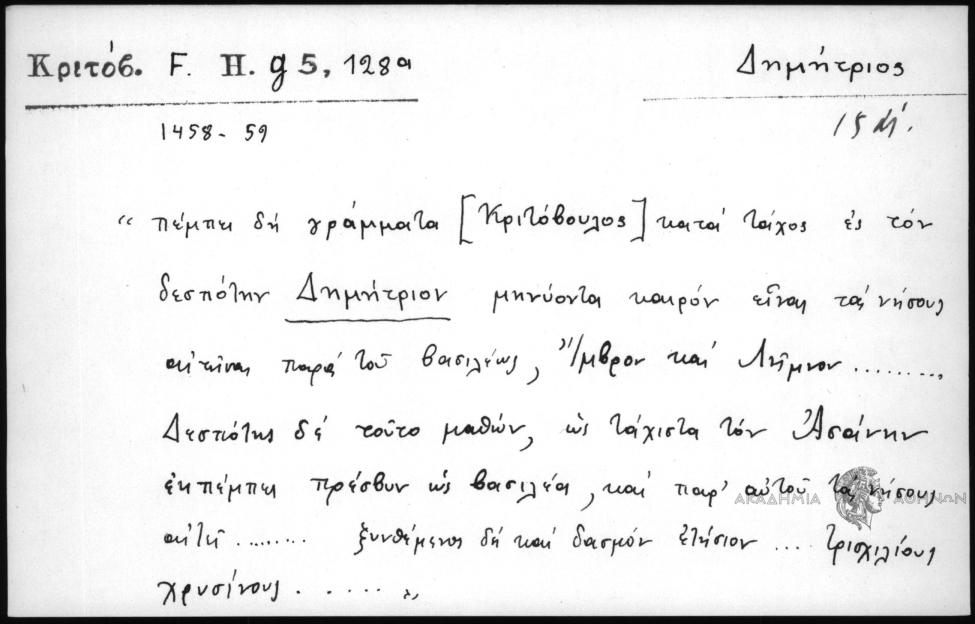 Κριτόβ. F. H. g 5, 128α
Δημήτριος
1458-59
15
“ πέμπει δή γράμματα [Κριτόβουλος] κατά τάχος ἐς τόν
δεσπότην Δημήτριον μηνύοντα καιρόν εἶναι τάς νήσους
αἰτεῖν παρά τοῦ βασιλέως, Ἴμβρον καί Λῆμνον .........
Δεσπότης δέ τοῦτο μαθών, ὡς τάχιστα τόν Ἀσάνην
ἐκπέμπει πρέσβυν ὡς βασιλέα, καί παρ’ αὐτοῦ τάς νήσους
αἰτεῖ ........ ξυνθέμενος δή καί δασμόν ἐτήσιον .... τρισχιλίους
χρυσίνους ...... „
ΑΚΑΔΗΜΙΑ ΑΘΗΝΩΝ